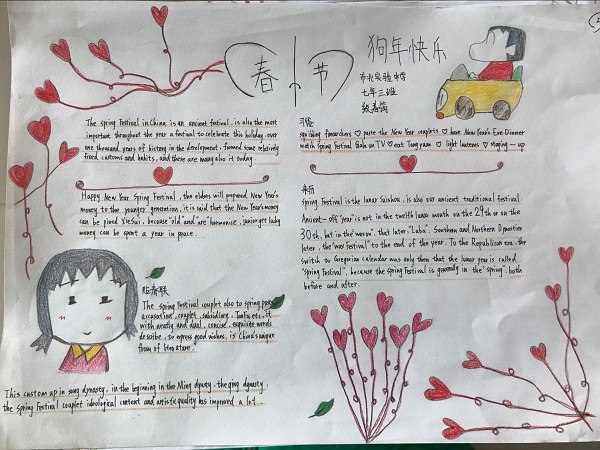 春节
狗年快乐
市北实验中学
七年三班
The Spring Festival in China is an ancient festival, is also the most
important throughout the year a festival to celebrate this holiday. over
one thousand years of history in the development, formed some relatively
fixed customs and habits, and there are many also it today.
习俗
squibbing firecrackers ♡ paste the New Year couplets ♡ have New Year's Eve Dinner
watch Spring Festival Gala on TV ♡ eat Tang yuan ♡ light lanterns ♡ staying-up
Happy New Year Spring Festival, the elders will prepared New Year's
money to the younger generation, it is said that the New Year's money
can be pined Yie Sui, because "old" and are "harmonice, junior get lucky
money can be spent a year in peace.
Spring Festival is the lunar Suishou, is also our ancient traditional festival.
Ancient-off "year" is not in the twelfth lunar month on the 29th or on the
30th, but in the wax sun", that later "Laba". Southern and Northern Dynasties
later, the "wax Festival" to the end of the year. To the Republican era, the
switch to Gregorian calendar was only then that the lunar year is called
"Spring Festival", because the Spring Festival is generally in the "spring" both
before and after.
贴春联
The Spring Festival couplet also to spring paste
a casastint, couplet, subsidiary, Taofu etc, it
with neatly and dual, concise, exquisite words
describe, to express good wishes, is China's unique
from of literature.
This custom up in song dynasty, in the beginning in the Ming dynasty, the qing dynasty,
the Spring Festival couplet ideological content and artistic quality has improved a lot.